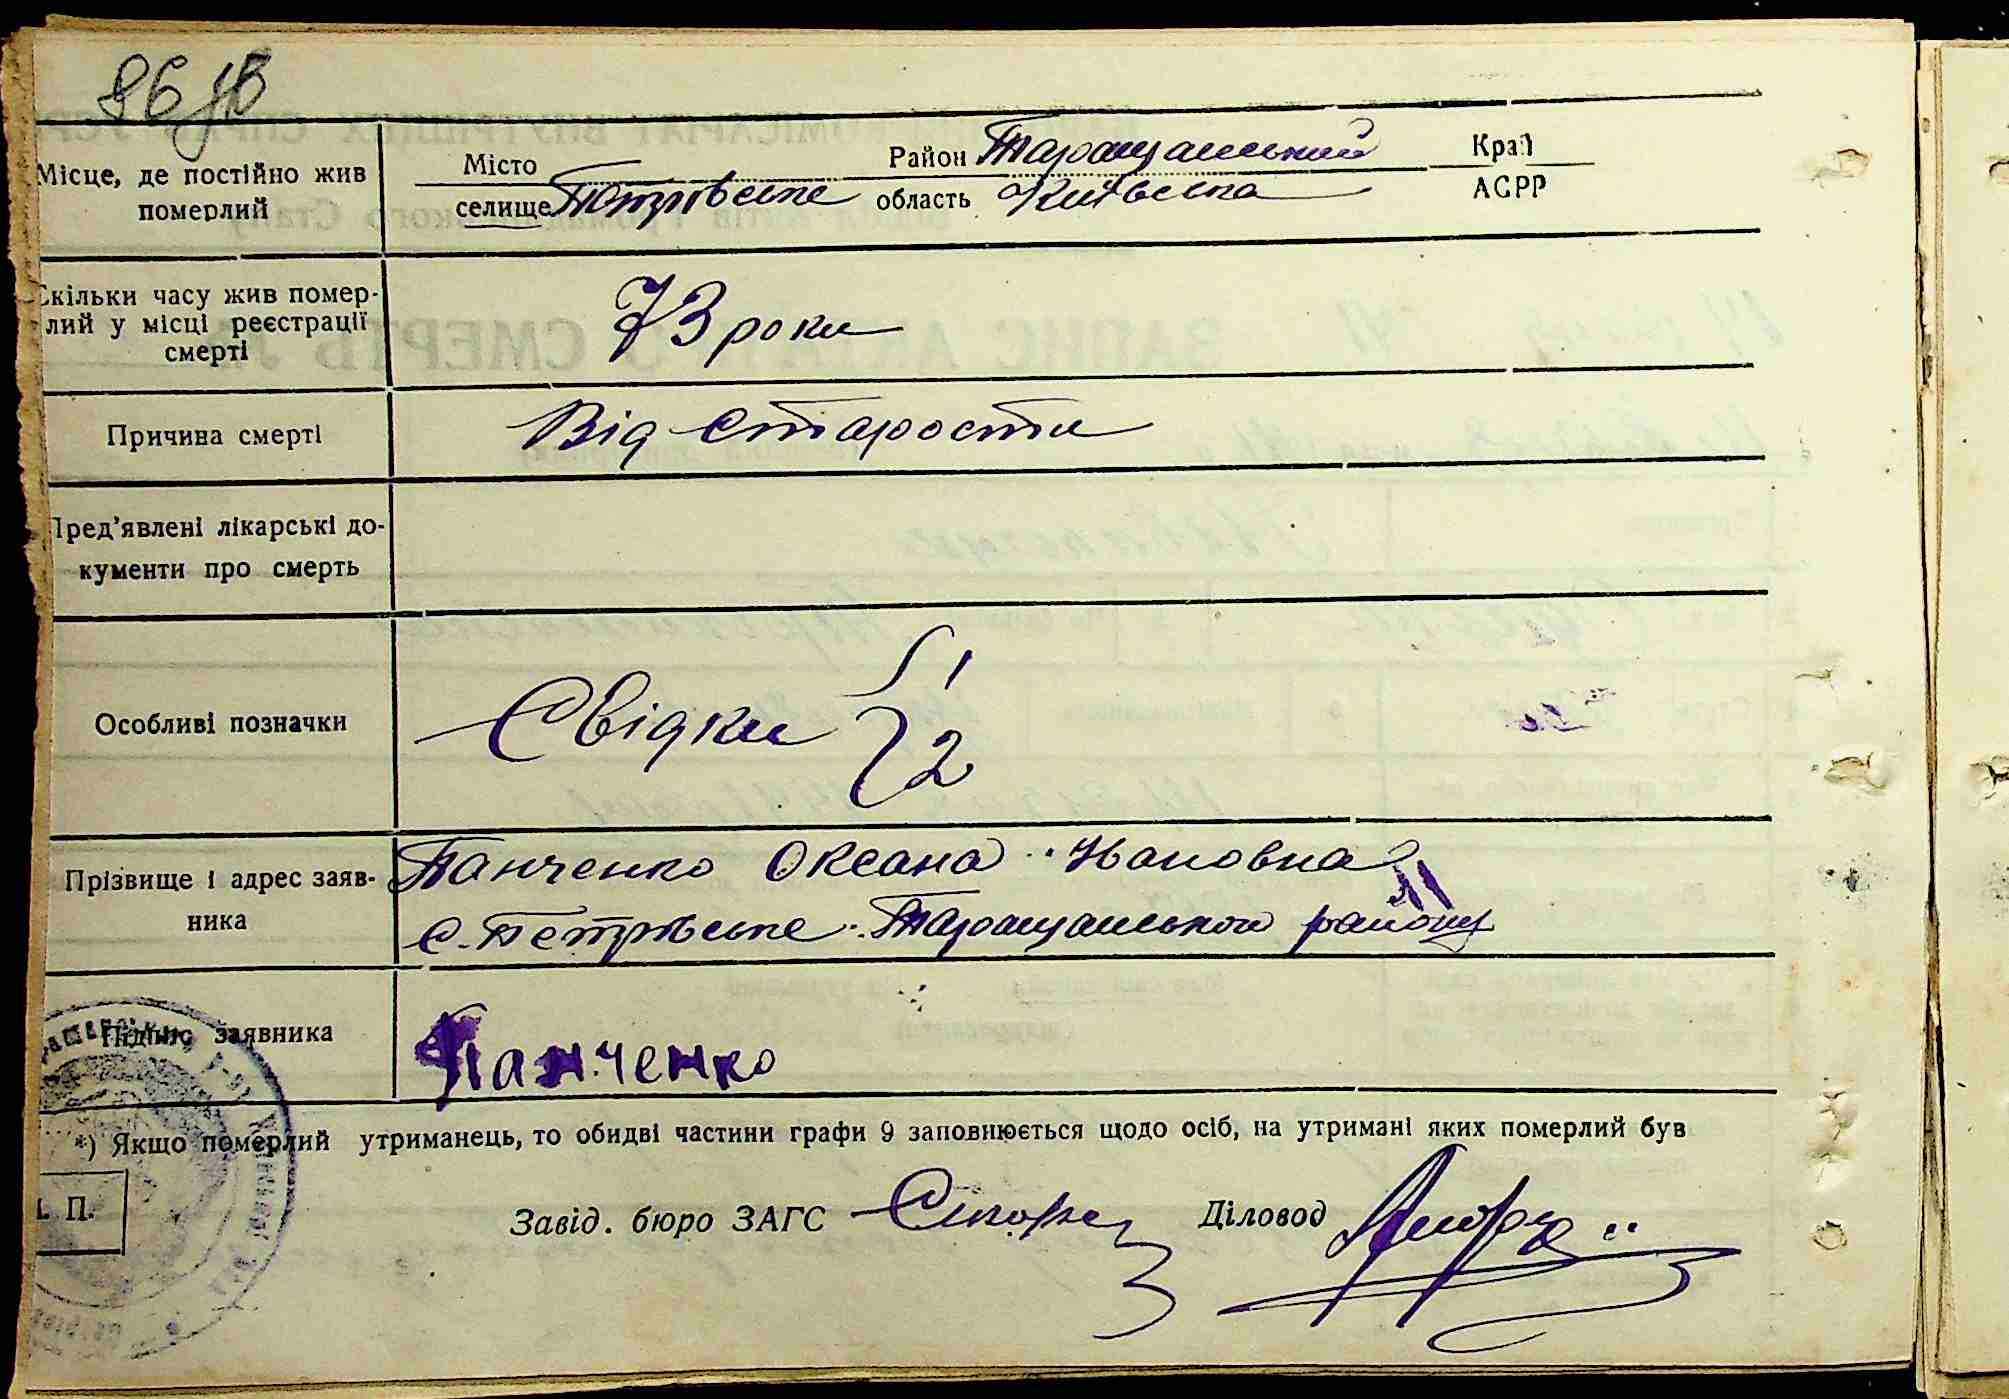 86 зв
Місце, де постійно жив померлий
Місто
селище Петрівське
Район Таращанський
область Київська
Край
АСРР
Скільки часу жив помер-
лий у місці реєстрації
смерті
73 роки
Причина смерті
Від старости
Пред'явлені лікарські до-
кументи про смерть
Особливі позначки
Свідки { 1
2
Прізвище і адрес заяв-
ника
Панченко Оксана
с. Петрівське Таращанського району
Підпис заявника
Панченко
*) Якщо померлий утриманець, то обидві частини графи 9 заповнюється щодо осіб, на утримані яких померлий був
П.
Завід. бюро ЗАГС
Діловод